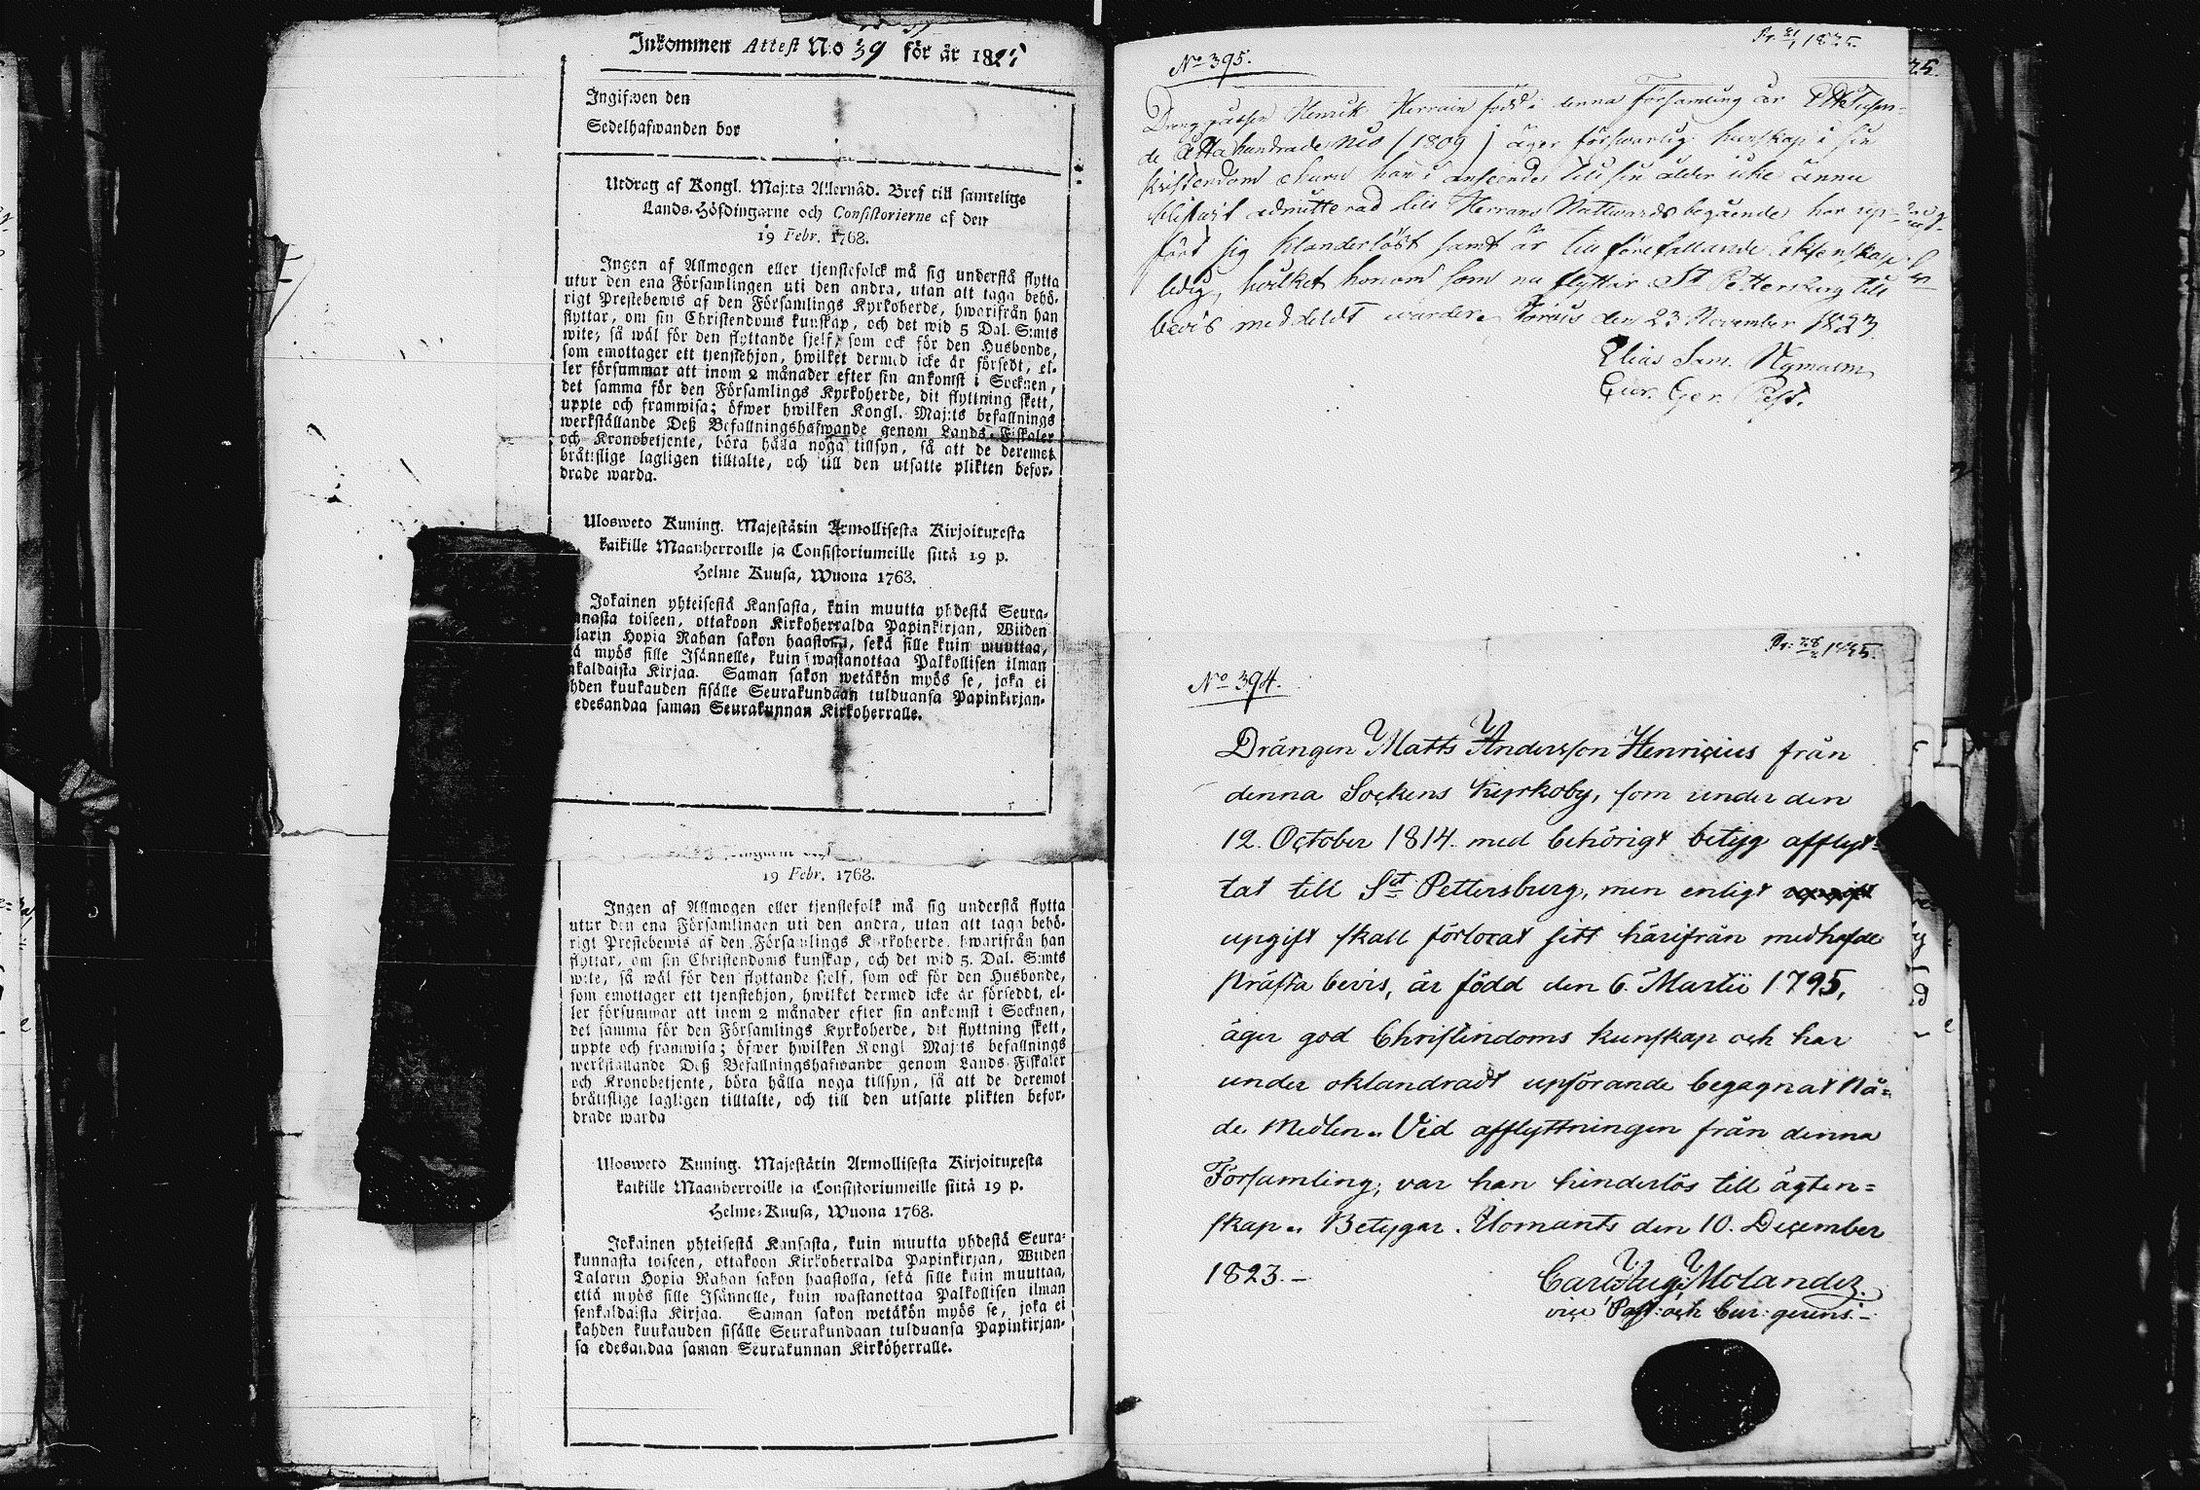 Inkommen Attest N:o 39 för år 1825
Ingifwen den
Sedelhafwanden bor
Utdrag af Kongl. Maj:ts Allernåd. Bref till samtelige
Lands-Höfdingarne och Consistorierne af den
19 Febr. 1768.
Ingen af Allmogen eller tjenstefolck må sig understå flytta
utur den ena Församlingen uti den andra, utan att taga behö-
rigt Prestebewis af den Församlings Kyrkoherde, hwarifrån han
flyttar, om sin Christendoms kunskap, och det wid 5 Dal. S:mts
wite, så wäl för den flyttande sjelf, som ock för den Husbonde,
som emottager ett tjenstehjon, hwilket dermed icke är försedt, el-
ler försummar att inom 2 månader efter sin ankomst i Socknen,
det samma för den Församlings Kyrkoherde, dit flyttning skett,
uppte och framwisa; öfwer hwilken Kongl. Maj:ts befallnings
werkställande Deß Befallningshafwande genom Lands-Fiskaler
och Kronobetjente, böra hålla noga tillsyn, så att de deremot
bråtislige lagligen tilltalte, och till den utsatte plikten befor-
drade warda.
Ulosweto Kuning. Majestätin Armollisesta Kirjoituxesta
kaikille Maanherroille ja Consistoriumeille siitä 19 p.
Helme Kuusa, Wuona 1768.
Jokainen yhteisestä Kansasta, kuin muutta yhdestä Seura-
nnasta toiseen, ottakoon Kirkoherralda Papinkirjan, Wiiden
larin Hopia Rahan sakon haastolla, sekä sille kuin muuttaa,
ä myös sille Isännelle, kuin wastanottaa Palkollisen ilman
nkaldaista Kirjaa. Saman sakon wetäkön myös se, joka ei
hden kuukauden sisälle Seurakundaan tulduansa Papinkirjan-
edesandaa saman Seurakunnan Kirkoherralle.
19 Febr. 1768.
Ingen af Allmogen eller tjenstefolk må sig understå flytta
utur den ena Församlingen uti den andra, utan att taga behö-
rigt Prestebewis af den Församlings Kyrkoherde, hwarifrån han
flyttar, om sin Christendoms kunskap, och det wid 5. Dal. S:mts
wite, så wäl för den flyttande sjelf, som ock för den Husbonde,
som emottager ett tjenstehjon, hwilket dermed icke är förseddt, el-
ler försummar att inom 2 månader efter sin ankomst i Socknen,
det samma för den Församlings Kyrkoherde, dit flyttning skett,
uppte och framwisa; öfwer hwilken Kongl Maj:ts befallnings
werkställande Deß Befallningshafwande genom Lands-Fiskaler
och Kronobetjente, böra hålla noga tillsyn, så att de deremot
bråttslige lagligen tilltalte, och till den utsatte plikten befor-
drade warda
Ulosweto Kuning. Majestätin Armollisesta Kirjoituxesta
kaikille Maanherroille ja Consistoriumeille siitä 19 p.
Helme-Kuusa, Wuona 1768.
Jokainen yhteisestä Kansasta, kuin muutta yhdestä Seura-
kunnasta toiseen, ottakoon Kirkoherralda Papinkirjan, Wiiden
Talarin Hopia Rahan sakon haastolla, sekä sille kuin muuttaa,
että myös sille Isännelle, kuin wastanottaa Palkollisen ilman
senkaldaista Kirjaa. Saman sakon wetäkön myös se, joka ei
kahden kuukauden sisälle Seurakundaan tulduansa Papinkirjan-
sa edesandaa saman Seurakunnan Kirköherralle.
Pr. 21/1 1825.
No 395.
25.
Dräng gåssen Henrik Herrain född i denna Församling år
de Åtta hundrade Nio (1809) äger försvarlig kunskap i sin
kristendom ehuru han i anseende till sin ålder icke ännu
blifwit admitterad till Herrans Nattwards begående, har up-
fört sig klanderlöst samt är till förefallande Ektenskap
ledig, hvilket honom som nu flyttar St Petterburg till
bevis meddeldt warder. den 23 November 1823
Elias Sam.
Cur. Ger. Past.
Pr: 28/2 1825.
No 394.
Drängen Matts Andersson Henricius från
denna Sockens Kyrkoby, som under den
12. October 1814. med behörigt betyg afflyt=
tat till St Pettersburg, men enligt
upgift skall förlorat sitt härifrån medhafde
Prästa bevis, är född den 6. Martii 1795,
äger god Christendoms kunskap och har
under oklandradt upförande begagnat Nå=
de Medlen. Vid afflyttningen från denna
Församling, var han hinderlös till ägten=
skap. Betygar. Ilomants den 10. December
1823.–
Carl Aug. Molander.
vice Past: och Cur: gerens:–